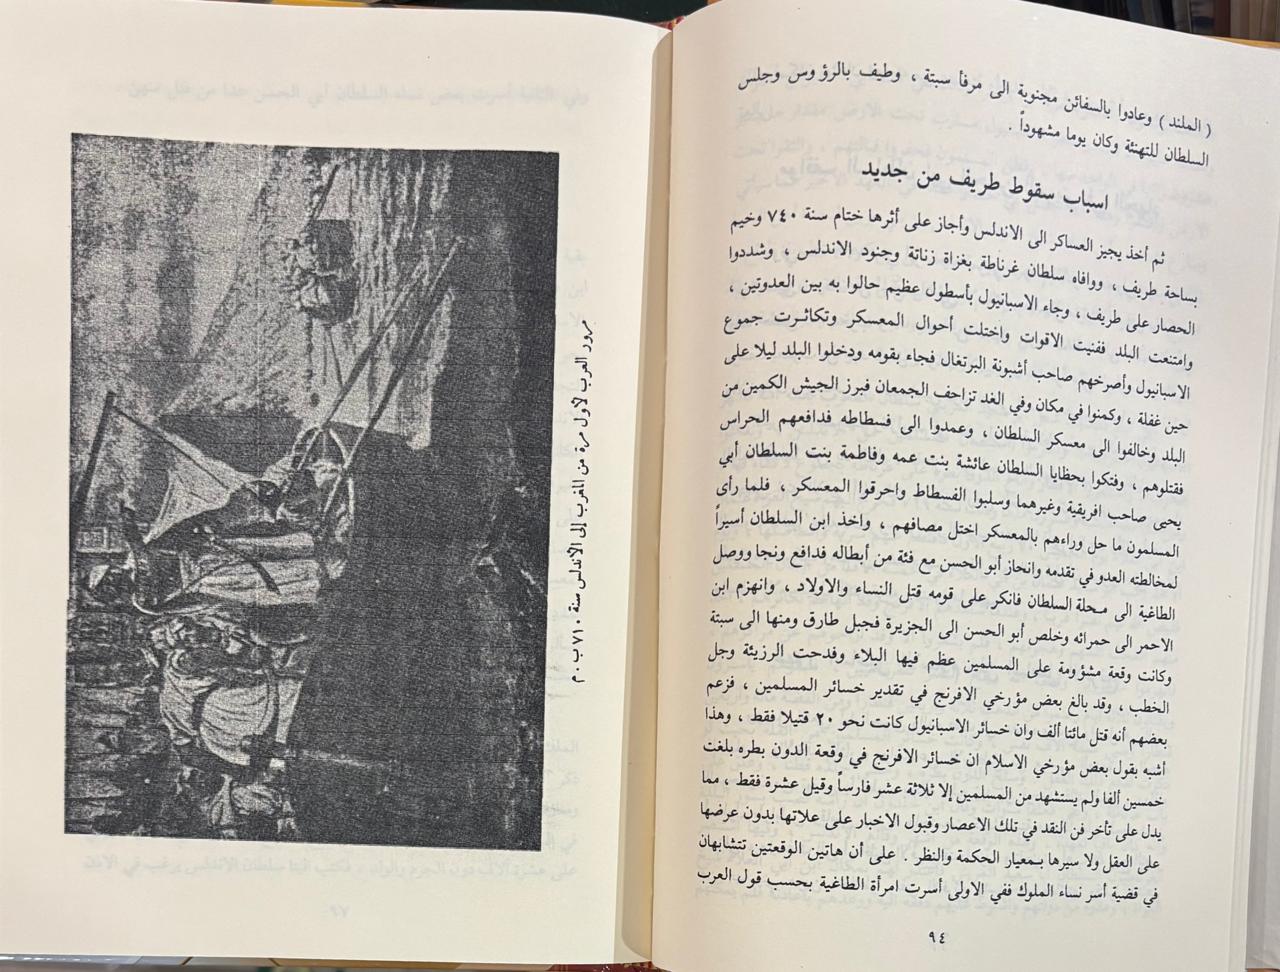 ( الملند ) وعادوا بالسفائن مجنوبة الى مرفأ سبتة ، وطيف بالرؤوس وجلس
السلطان للتهنئة وكان يوما مشهوداً .
اسباب سقوط طريف من جديد
ثم أخذ يجيز العساكر الى الاندلس وأجاز على أثرها ختام سنة ٧٤٠ وخيم
بساحة طريف ، ووافاه سلطان غرناطة بغزاة زناتة وجنود الاندلس ، وشددوا
الحصار على طريف ، وجاء الاسبانيول بأسطول عظيم حالوا به بين العدوتين ،
وامتنعت البلد ففنيت الاقوات واختلت أحوال المعسكر وتكاثرت جموع
الاسبانيول وأصرخهم صاحب أشبونة البرتغال فجاء بقومه ودخلوا البلد ليلا على
حين غفلة ، وكمنوا في مكان وفي الغد تزاحف الجمعان فبرز الجيش الكمين من
البلد وخالفوا الى معسكر السلطان ، وعمدوا الى فسطاطه فدافعهم الحراس
فقتلوهم ، وفتكوا بحظايا السلطان عائشة بنت عمه وفاطمة بنت السلطان أبي
يحيى صاحب افريقية وغيرهما وسلبوا الفسطاط واحرقوا المعسكر ، فلما رأى
المسلمون ما حل وراءهم بالمعسكر اختل مصافهم ، واخذ ابن السلطان أسيراً
لمخالطته العدو في تقدمه وانحاز أبو الحسن مع فئة من أبطاله فدافع ونجا ووصل
الطاغية الى محلة السلطان فانكر على قومه قتل النساء والاولاد ، وانهزم ابن
الاحمر الى حمرائه وخلص أبو الحسن الى الجزيرة فجبل طارق ومنها الى سبتة
وكانت وقعة مشؤومة على المسلمين عظم فيها البلاء وفدحت الرزيئة وجل
الخطب ، وقد بالغ بعض مؤرخي الافرنج في تقدير خسائر المسلمين ، فزعم
بعضهم أنه قتل مائتا ألف وان خسائر الاسبانيول كانت نحو ٢٠ قتيلا فقط ، وهذا
أشبه بقول بعض مؤرخي الاسلام ان خسائر الافرنج في وقعة الدون بطره بلغت
خمسين ألفا ولم يستشهد من المسلمين إلا ثلاثة عشر فارساً وقيل عشرة فقط ، مما
يدل على تأخر فن النقد في تلك الاعصار وقبول الاخبار على علاتها بدون عرضها
على العقل ولا سيرها بمعيار الحكمة والنظر . على أن هاتين الوقعتين تتشابهان
في قضية أسر نساء الملوك ففي الاولى أسرت امرأة الطاغية بحسب قول العرب
٩٤
مرور العرب لأول مرة من المغرب إلى الأندلس سنة ٧١٠ ب . م